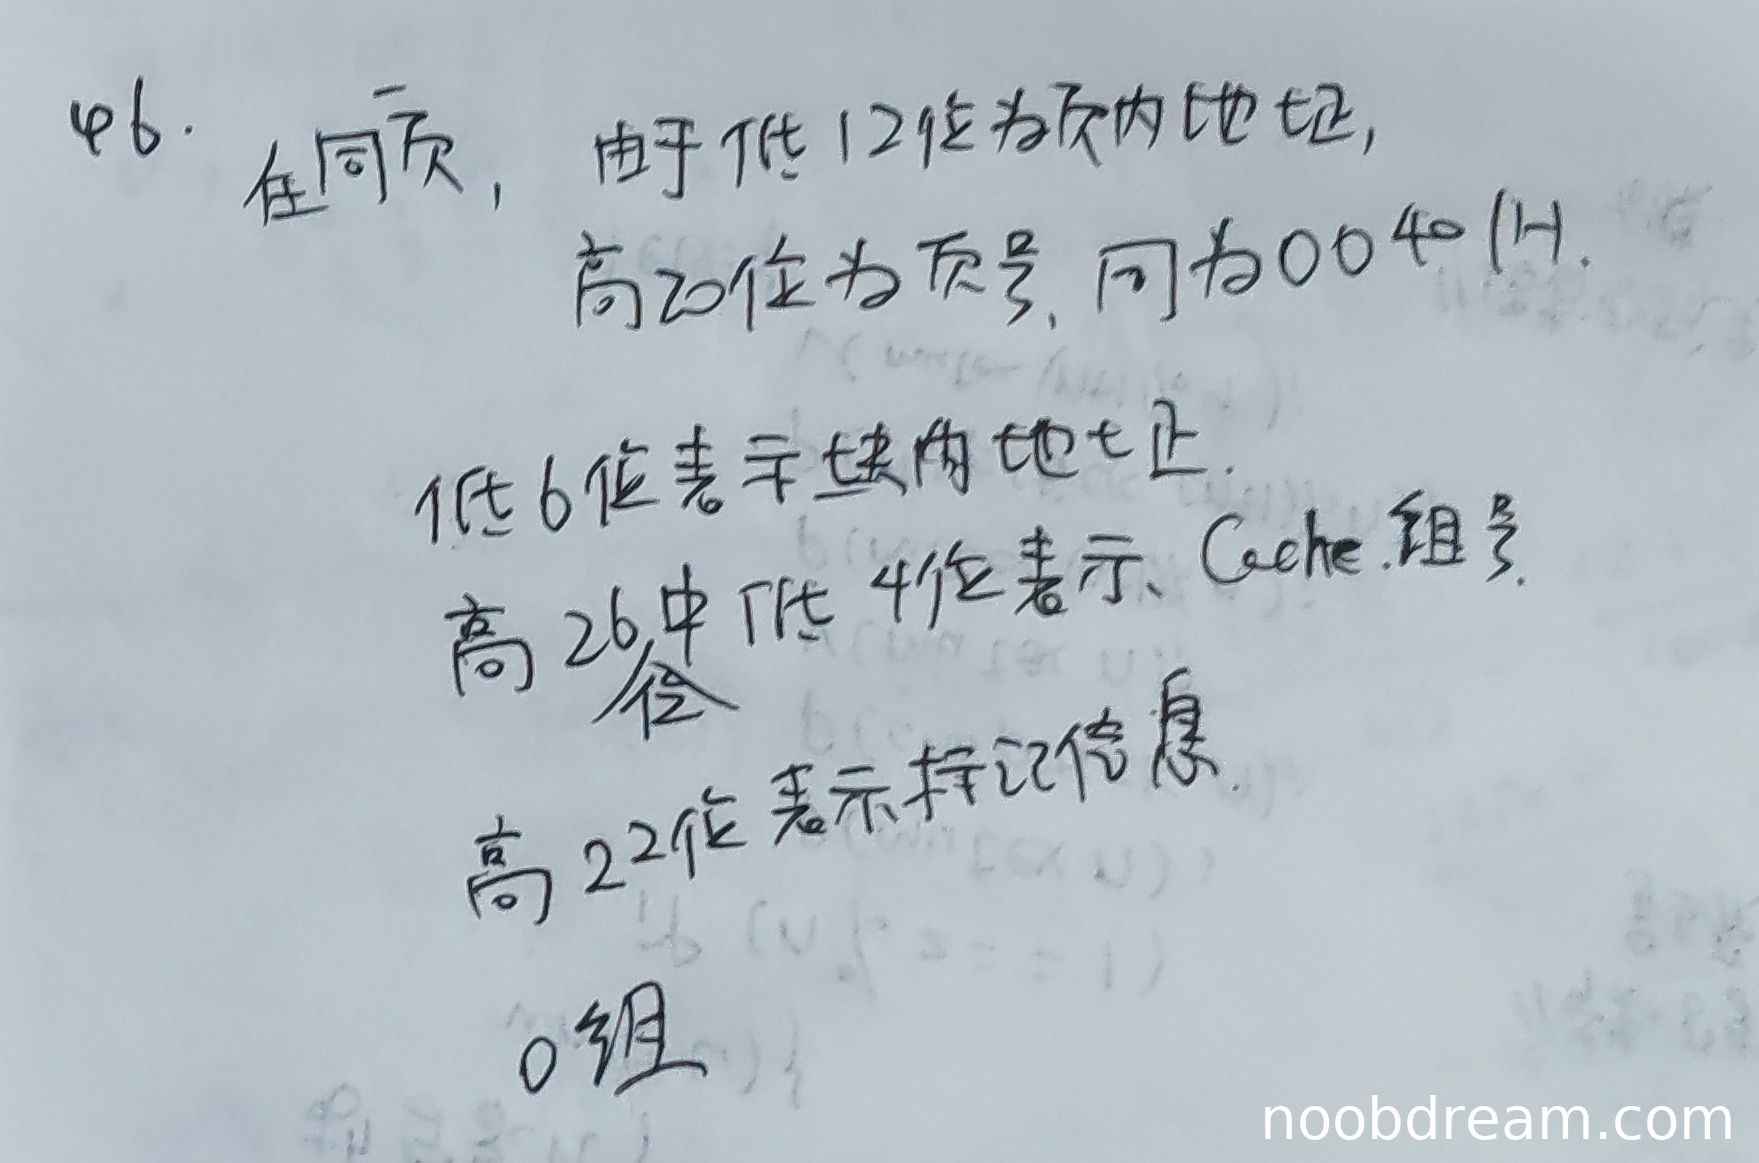 46. 在同一页, 由于低12位为页内地址,
高20位为页号, 同为00401H.
低6位表示块内地址.
高26位中低4位表示Cache.组号.
高22位表示标记信息.
0组
noobdream.com